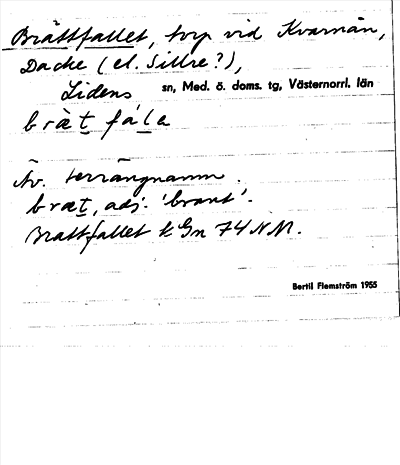 Brättfallet, torp vid Kvarnån,
Dacke (el. Sillre?),
Lidens sn, Med. ö. doms. tg, Västernorrl. län
bræt fála
Äv. terrängnamn.
bræt, adj. 'brant'.
Brattfallet k Gn 74 NM.
Bertil Flemström 1955